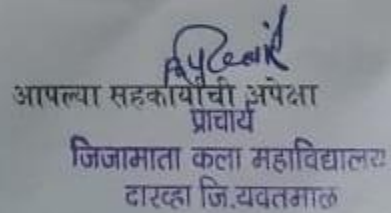 आपल्या सहकार्याची अपेक्षा
प्राचार्य
जिजामाता कला महाविद्यालय
दारव्हा जि.यवतमाळ